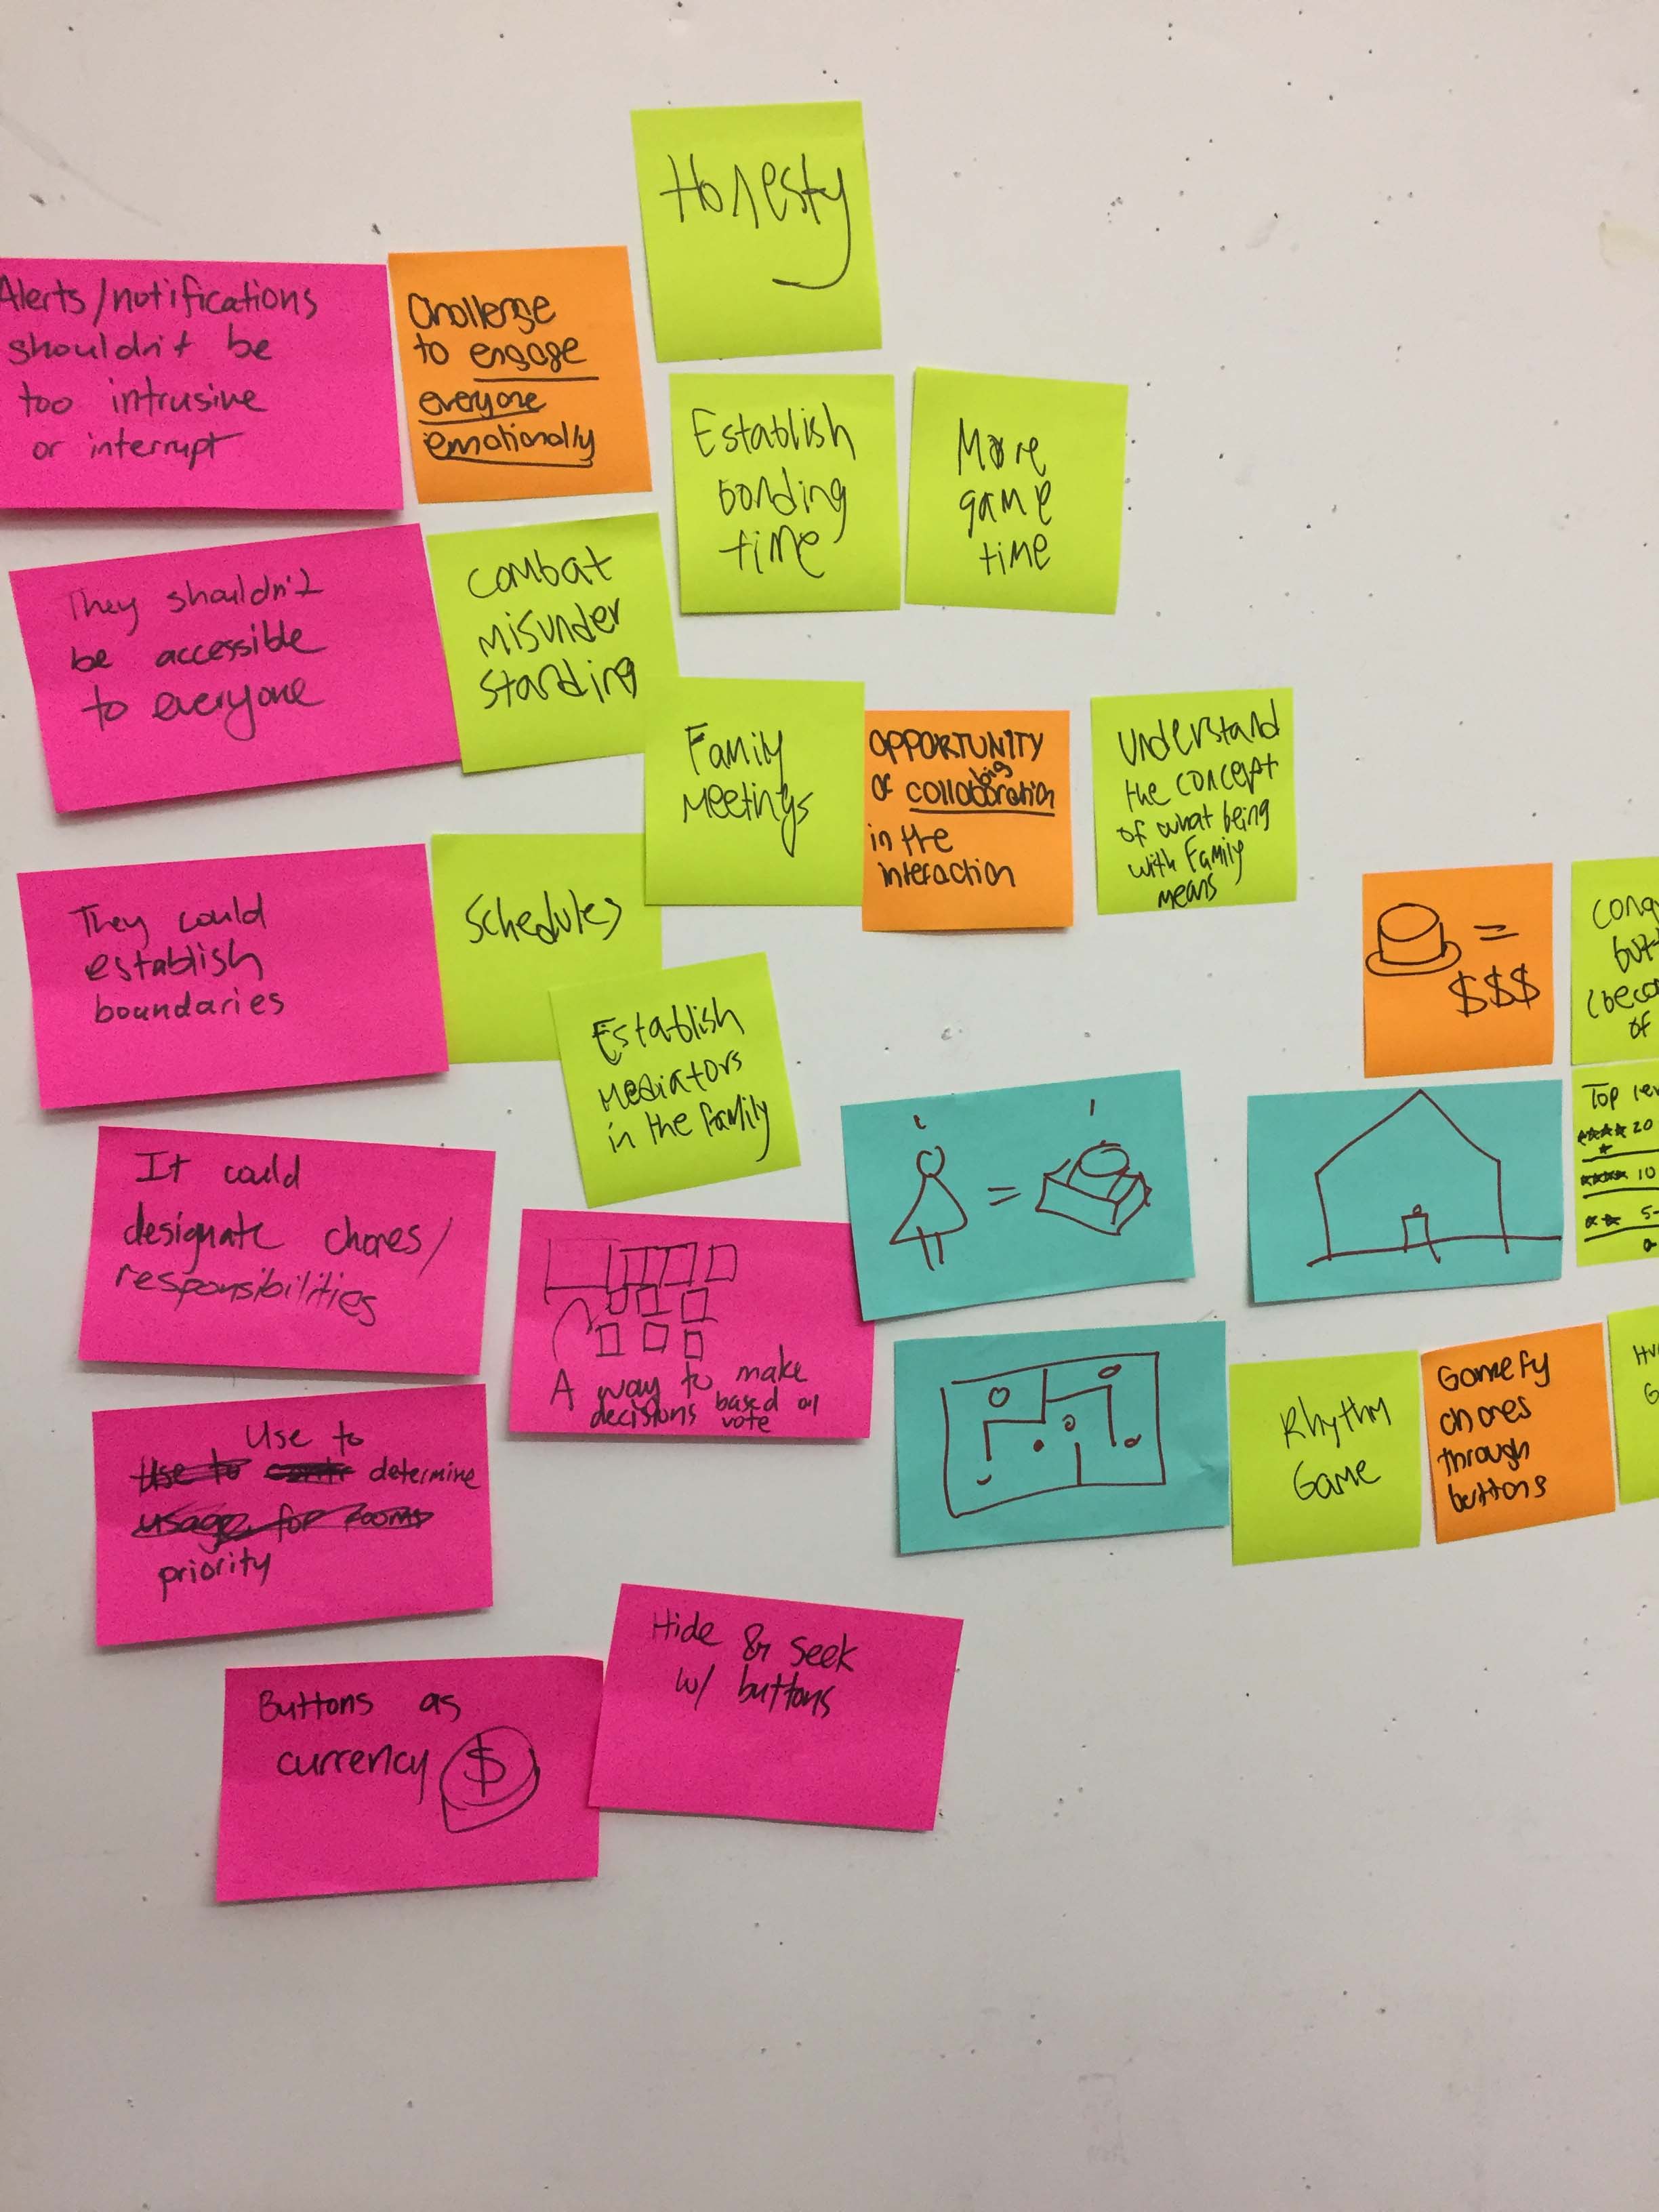 Honesty
Alerts/notifications
shouldn't be
too intrusive
or interrupt
Challenge
to engage
everyone
emotionally
Establish
bonding
time
More
game
time
They shouldn't
be accessible
to everyone
Combat
misunder
standing
Family
Meetings
OPPORTUNITY
of big collaboration
in the
interaction
Understand
the concept
of what being
with Family
means
They could
establish
boundaries
Schedules
Establish
Mediators
in the family
=
$$$
=
Top
20
10
5-
It could
designate chores/
responsibilities
A way to make
decisions based on
vote
Rhythm
Game
Gamefy
chores
through
buttons
Use to
determine
priority
Hide & seek
w/ buttons
Buttons as
currency $